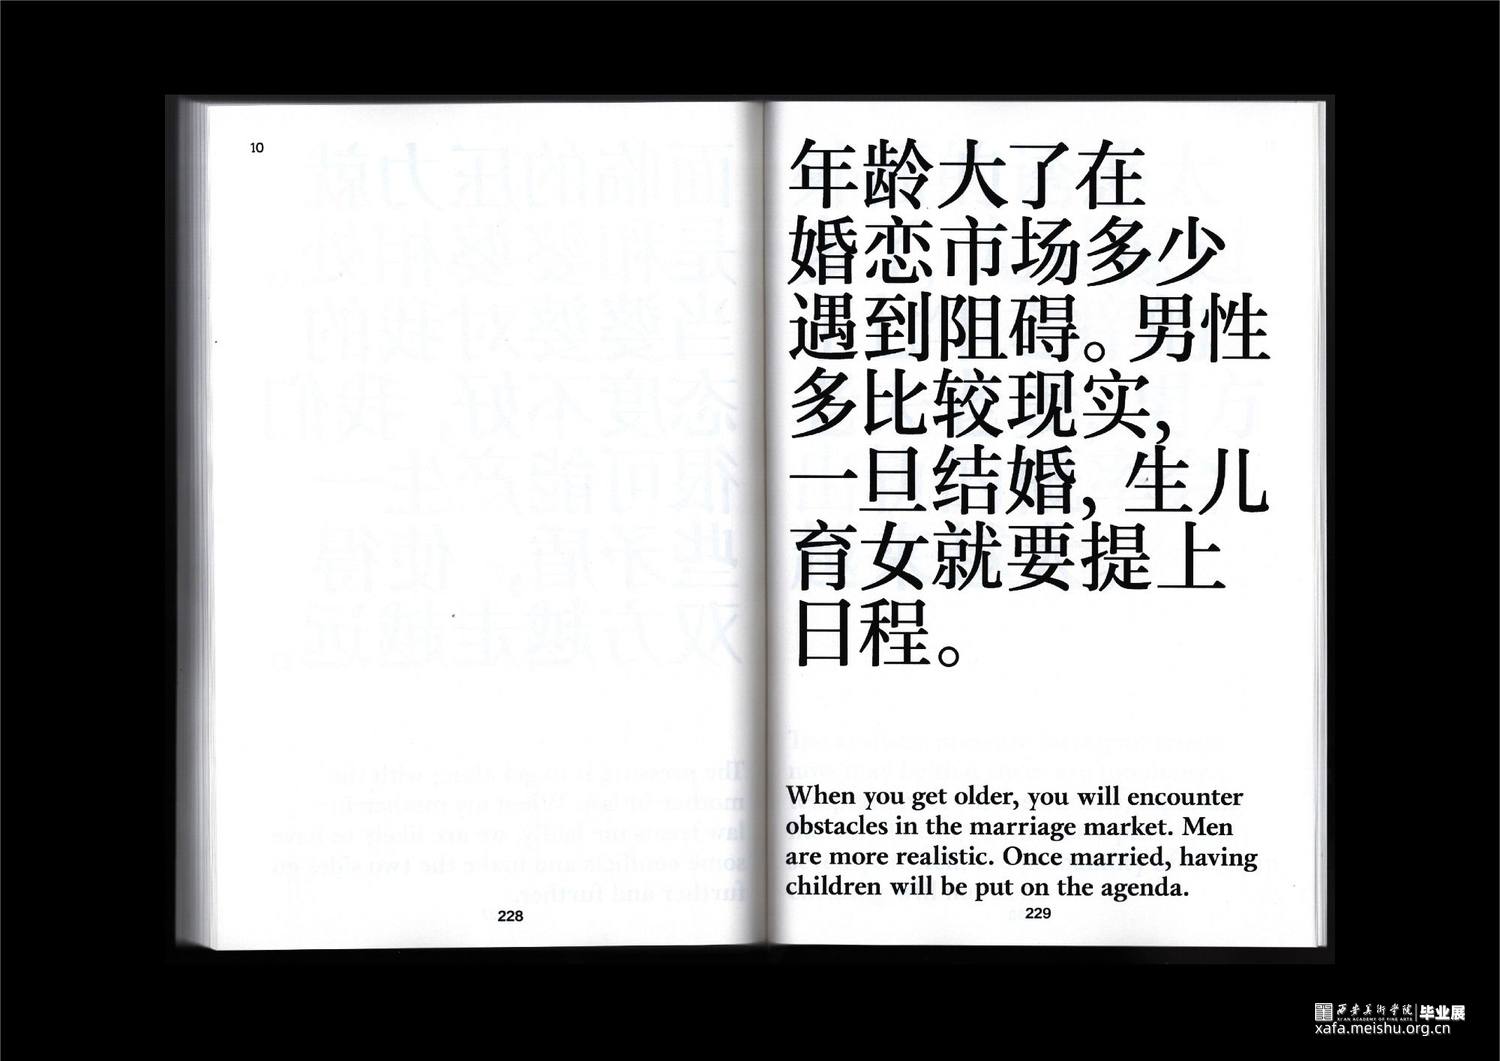 10
228
年龄大了在
婚恋市场多少
遇到阻碍。男性
多比较现实，
一旦结婚，生儿
育女就要提上
日程。
When you get older, you will encounter
obstacles in the marriage market. Men
are more realistic. Once married, having
children will be put on the agenda.
229
西安美术学院 毕业展
XI'AN ACADEMY OF FINE ARTS
xafa.meishu.org.cn